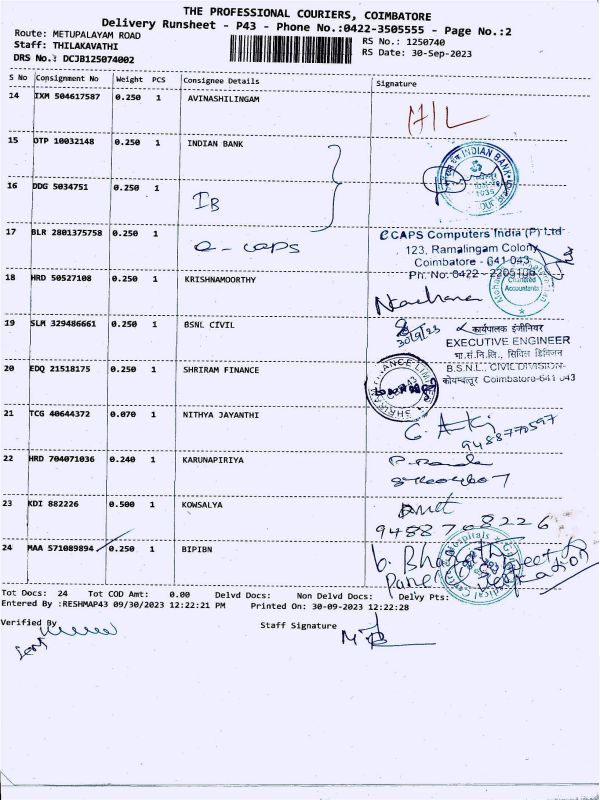 THE PROFESSIONAL COURIERS, COIMBATORE
Delivery Runsheet - P43 - Phone No.:0422-3505555 - Page No.:2
Route: METUPALAYAM ROAD
Staff: THILAKAVATHI
DRS No.: DCJB125074002
RS No.: 1250740
RS Date: 30-Sep-2023
S No Consignment No Weight PCS Consignee Details Signature
14 IXM 504617587 0.250 1 AVINASHILINGAM
AIL
15 OTP 10032148 0.250 1 INDIAN BANK
INDIAN BANK
16 DDG 5034751 0.250 1
IB
17 BLR 2801375758 0.250 1
e-caps
eCAPS Computers India (P) Ltd
123, Ramalingam Colony
Coimbatore - 641 043
Ph. No: 0422 - 2205106
18 HRD 50527108 0.250 1 KRISHNAMOORTHY
Chartered
Accountants
19 SLM 329486661 0.250 1 BSNL CIVIL
30/9/23
कार्यपालक इंजीनियर
EXECUTIVE ENGINEER
भा.सं.नि.लि., सिविल डिविजन
B.S.N.L., CIVIL DIVISION-
कोयम्बत्तूर Coimbatore-641 043
20 EDQ 21518175 0.250 1 SHRIRAM FINANCE
21 TCG 40644372 0.070 1 NITHYA JAYANTHI
9488770597
22 HRD 704071036 0.240 1 KARUNAPIRIYA
23 KDI 882226 0.500 1 KOWSALYA
9488708226
24 MAA 571089894 0.250 1 BIPIBN
Tot Docs: 24 Tot COD Amt: 0.00 Delvd Docs: Non Delvd Docs: Delvy Pts:
Entered By :RESHMAP43 09/30/2023 12:22:21 PM Printed On: 30-09-2023 12:22:28
Verified By
Staff Signature